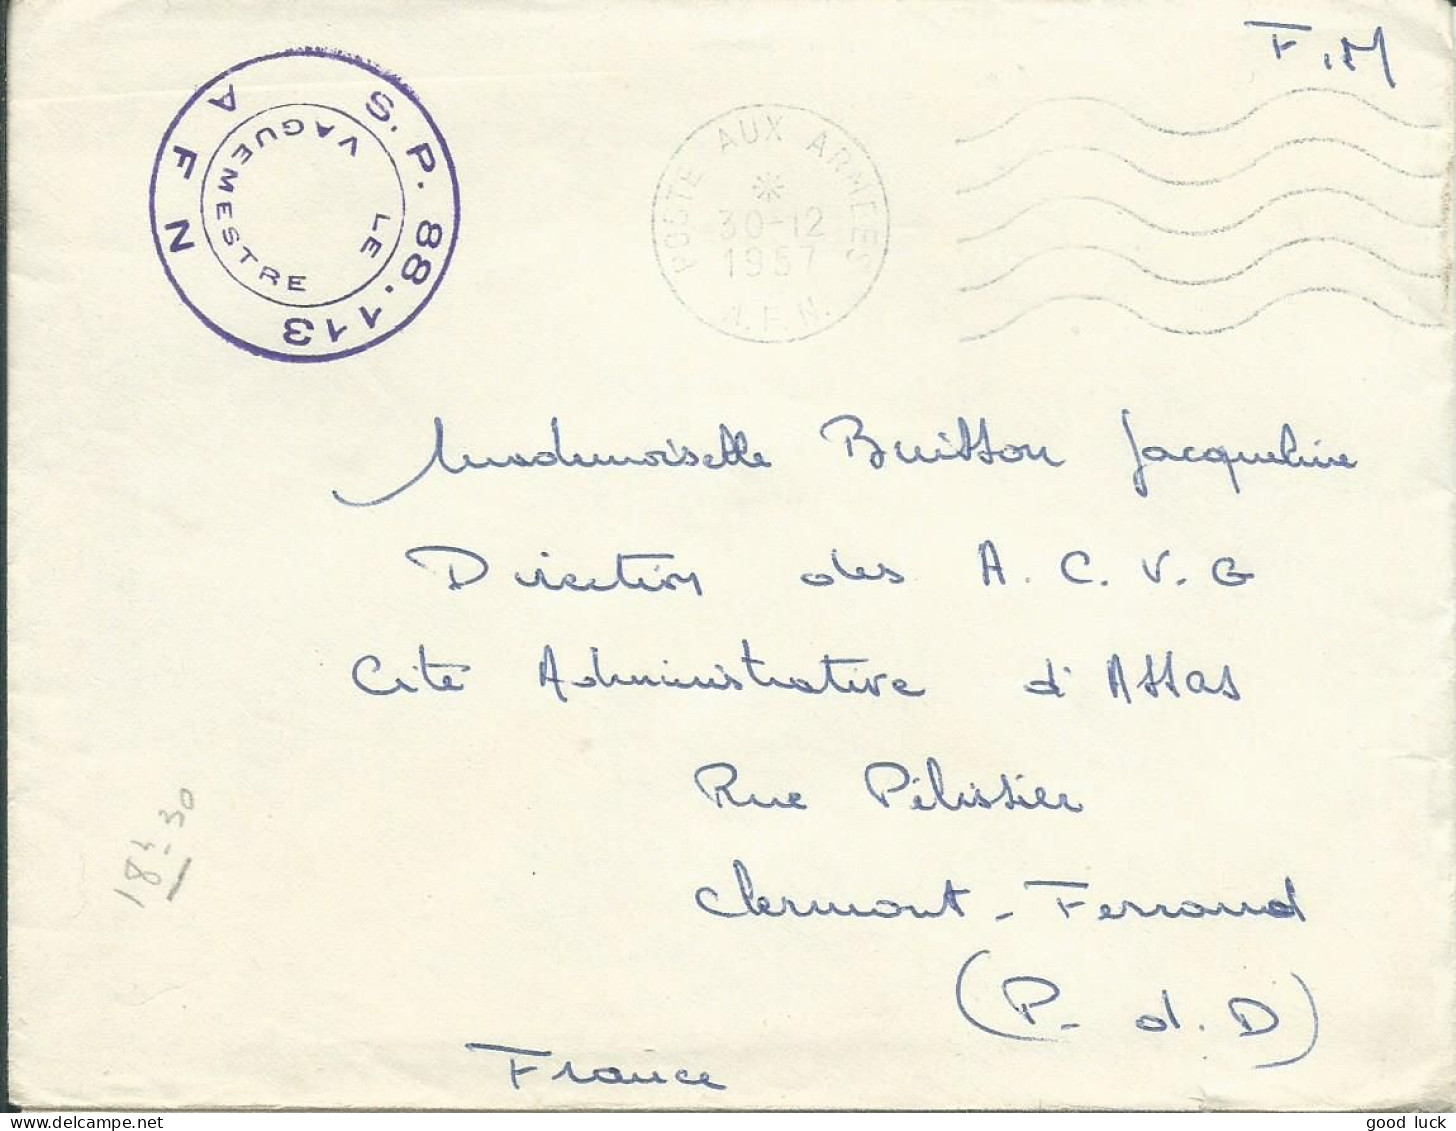 F.M
S.P. 88.113
A F N
LE VAGUEMESTRE
POSTE AUX ARMEES
30-12
1957
A.F.N.
Mademoiselle Buisson Jacqueline
Direction des A. C. V. G
Cité Administrative d'Assas
Rue Pélissier
Clermont-Ferrand
(P. d. D)
France
18h-30
good luck